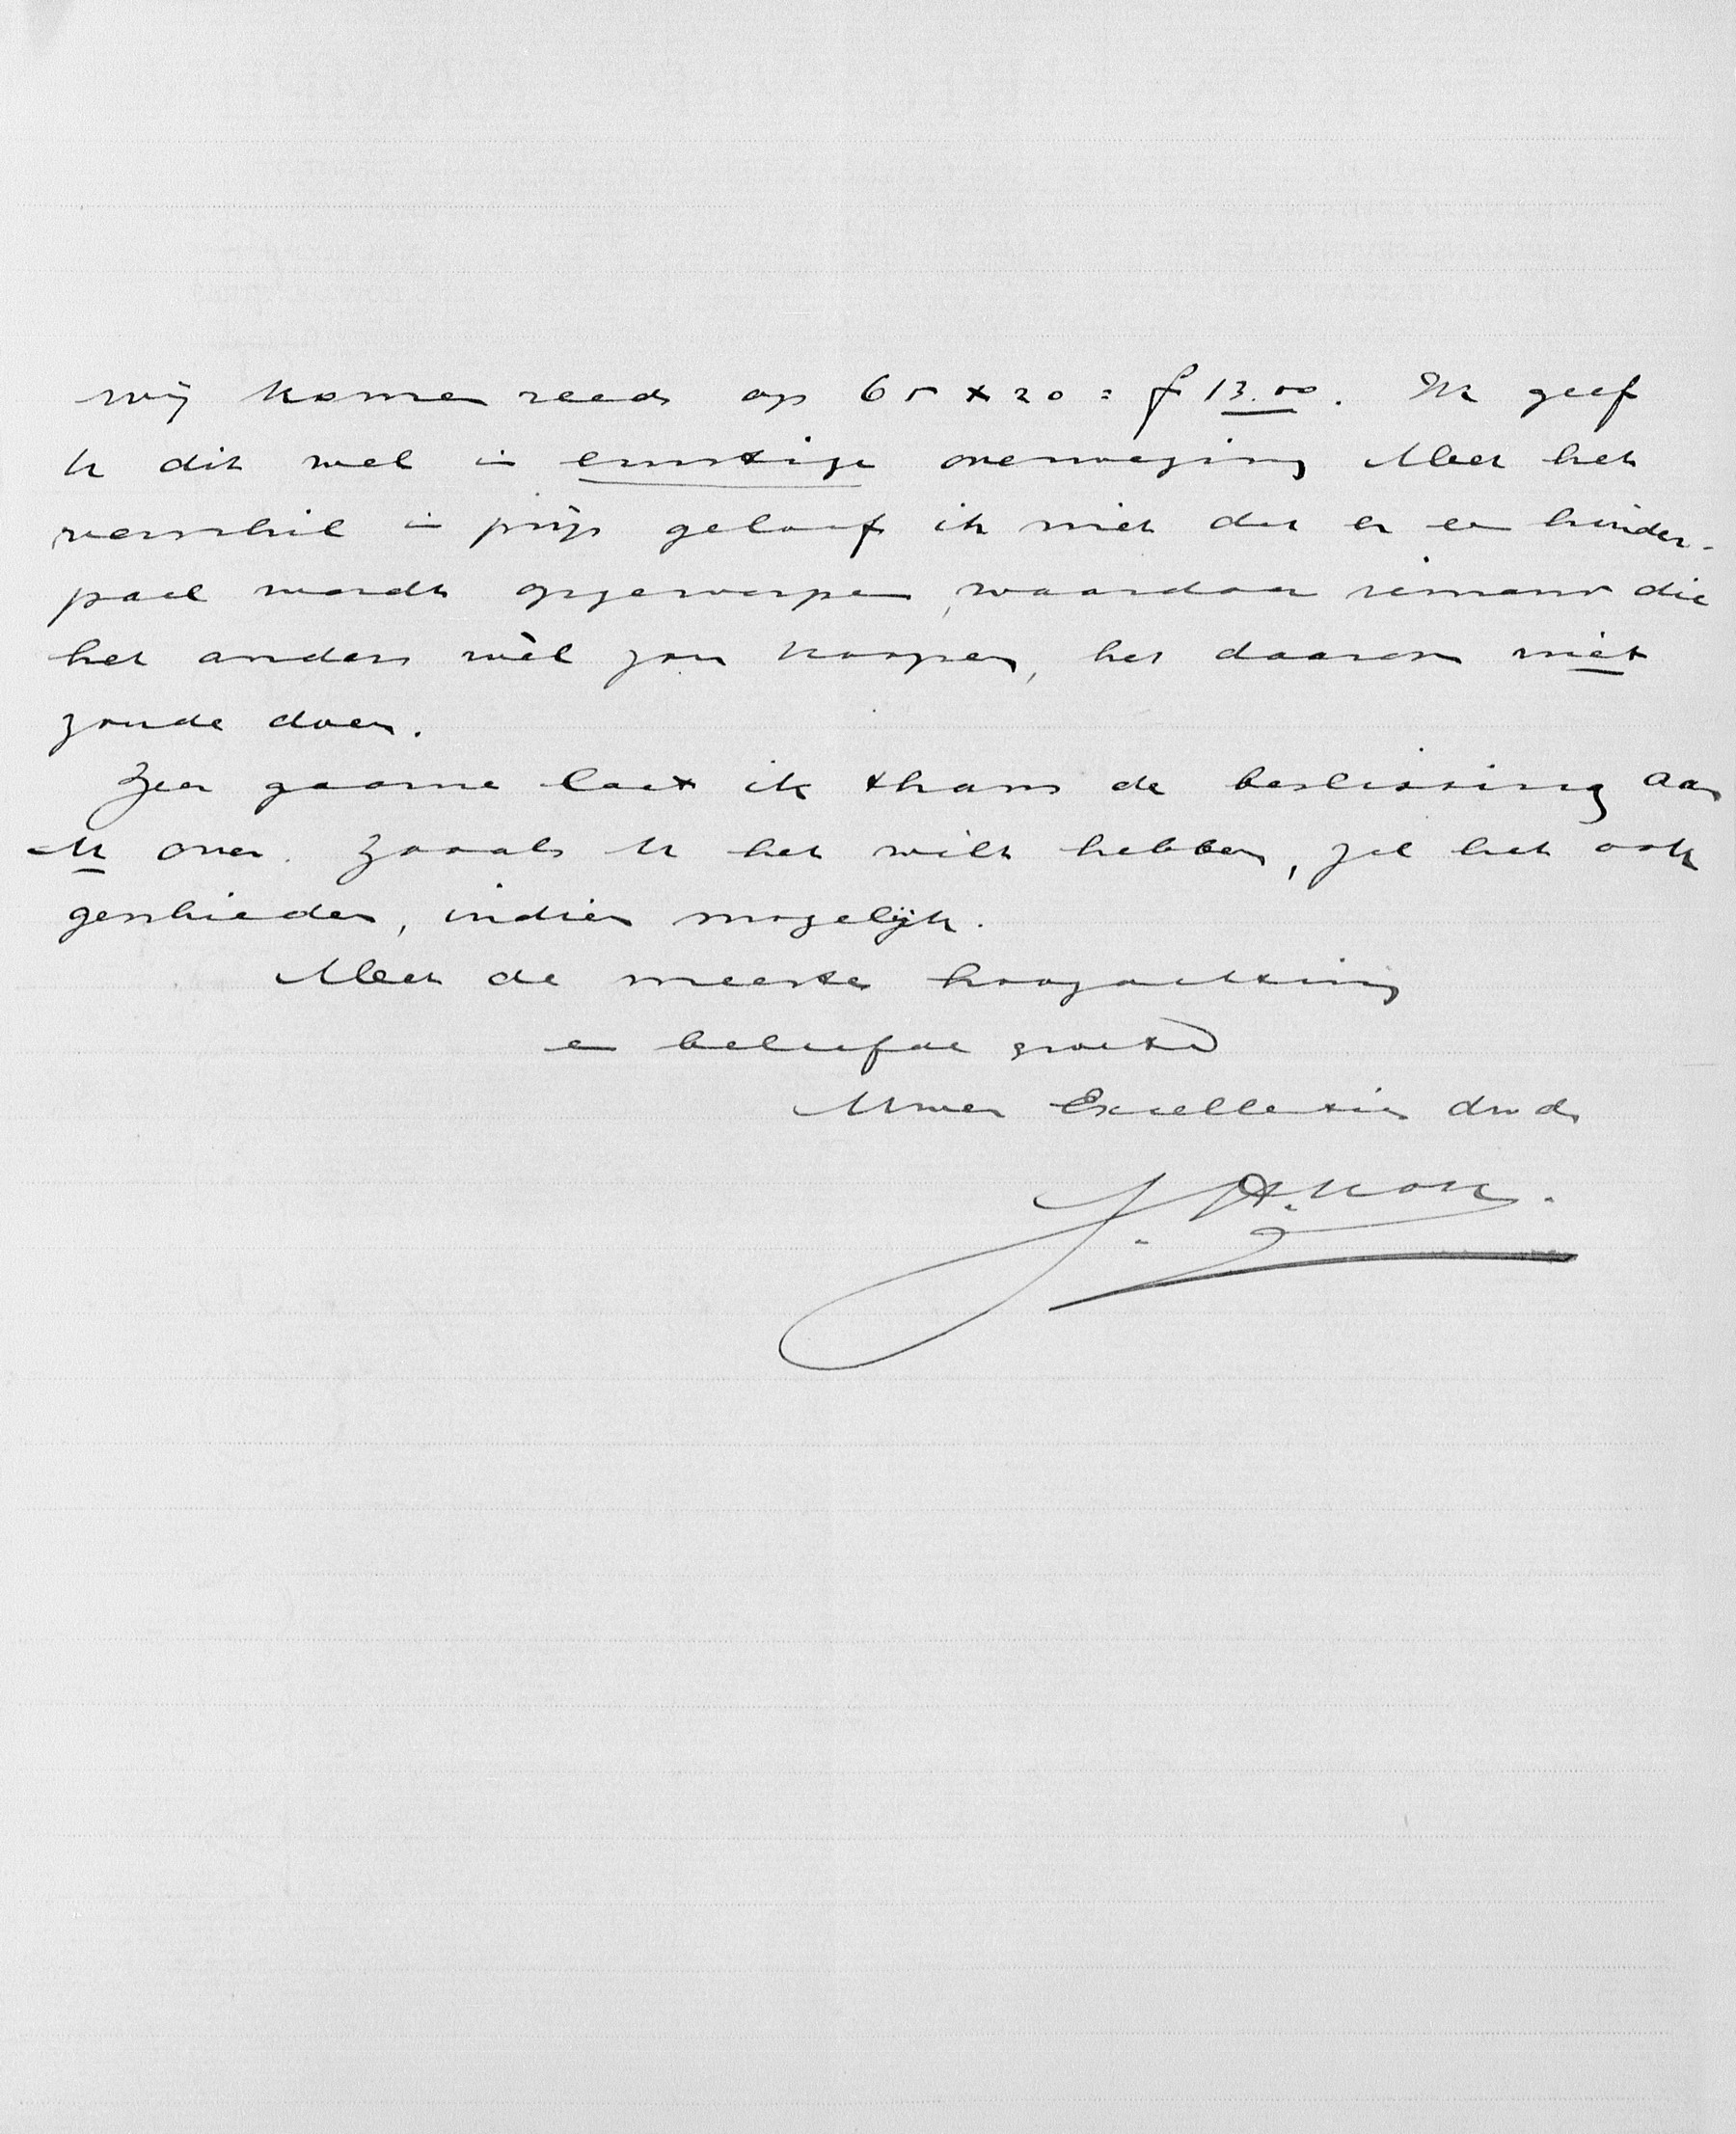 wij komen reeds op 65 x 20 = f 13.00. Ik geef
U dit wel in ernstige overweging Met het
verschil in prijs geloof ik niet dat er een hinder-
paal wordt opgeworpen, waardoor iemand die
het anders wèl zou koopen, het daarom niet
zoude doen.
Zeer gaarne laat ik thans de beslissing aan
U over. Zooals U het wilt hebben, zal het ook
geschieden, indien mogelijk.
Met de meeste hoogachting
en beleefde groeten
Uwer Excellentie's dwd.
J. A. Kok.